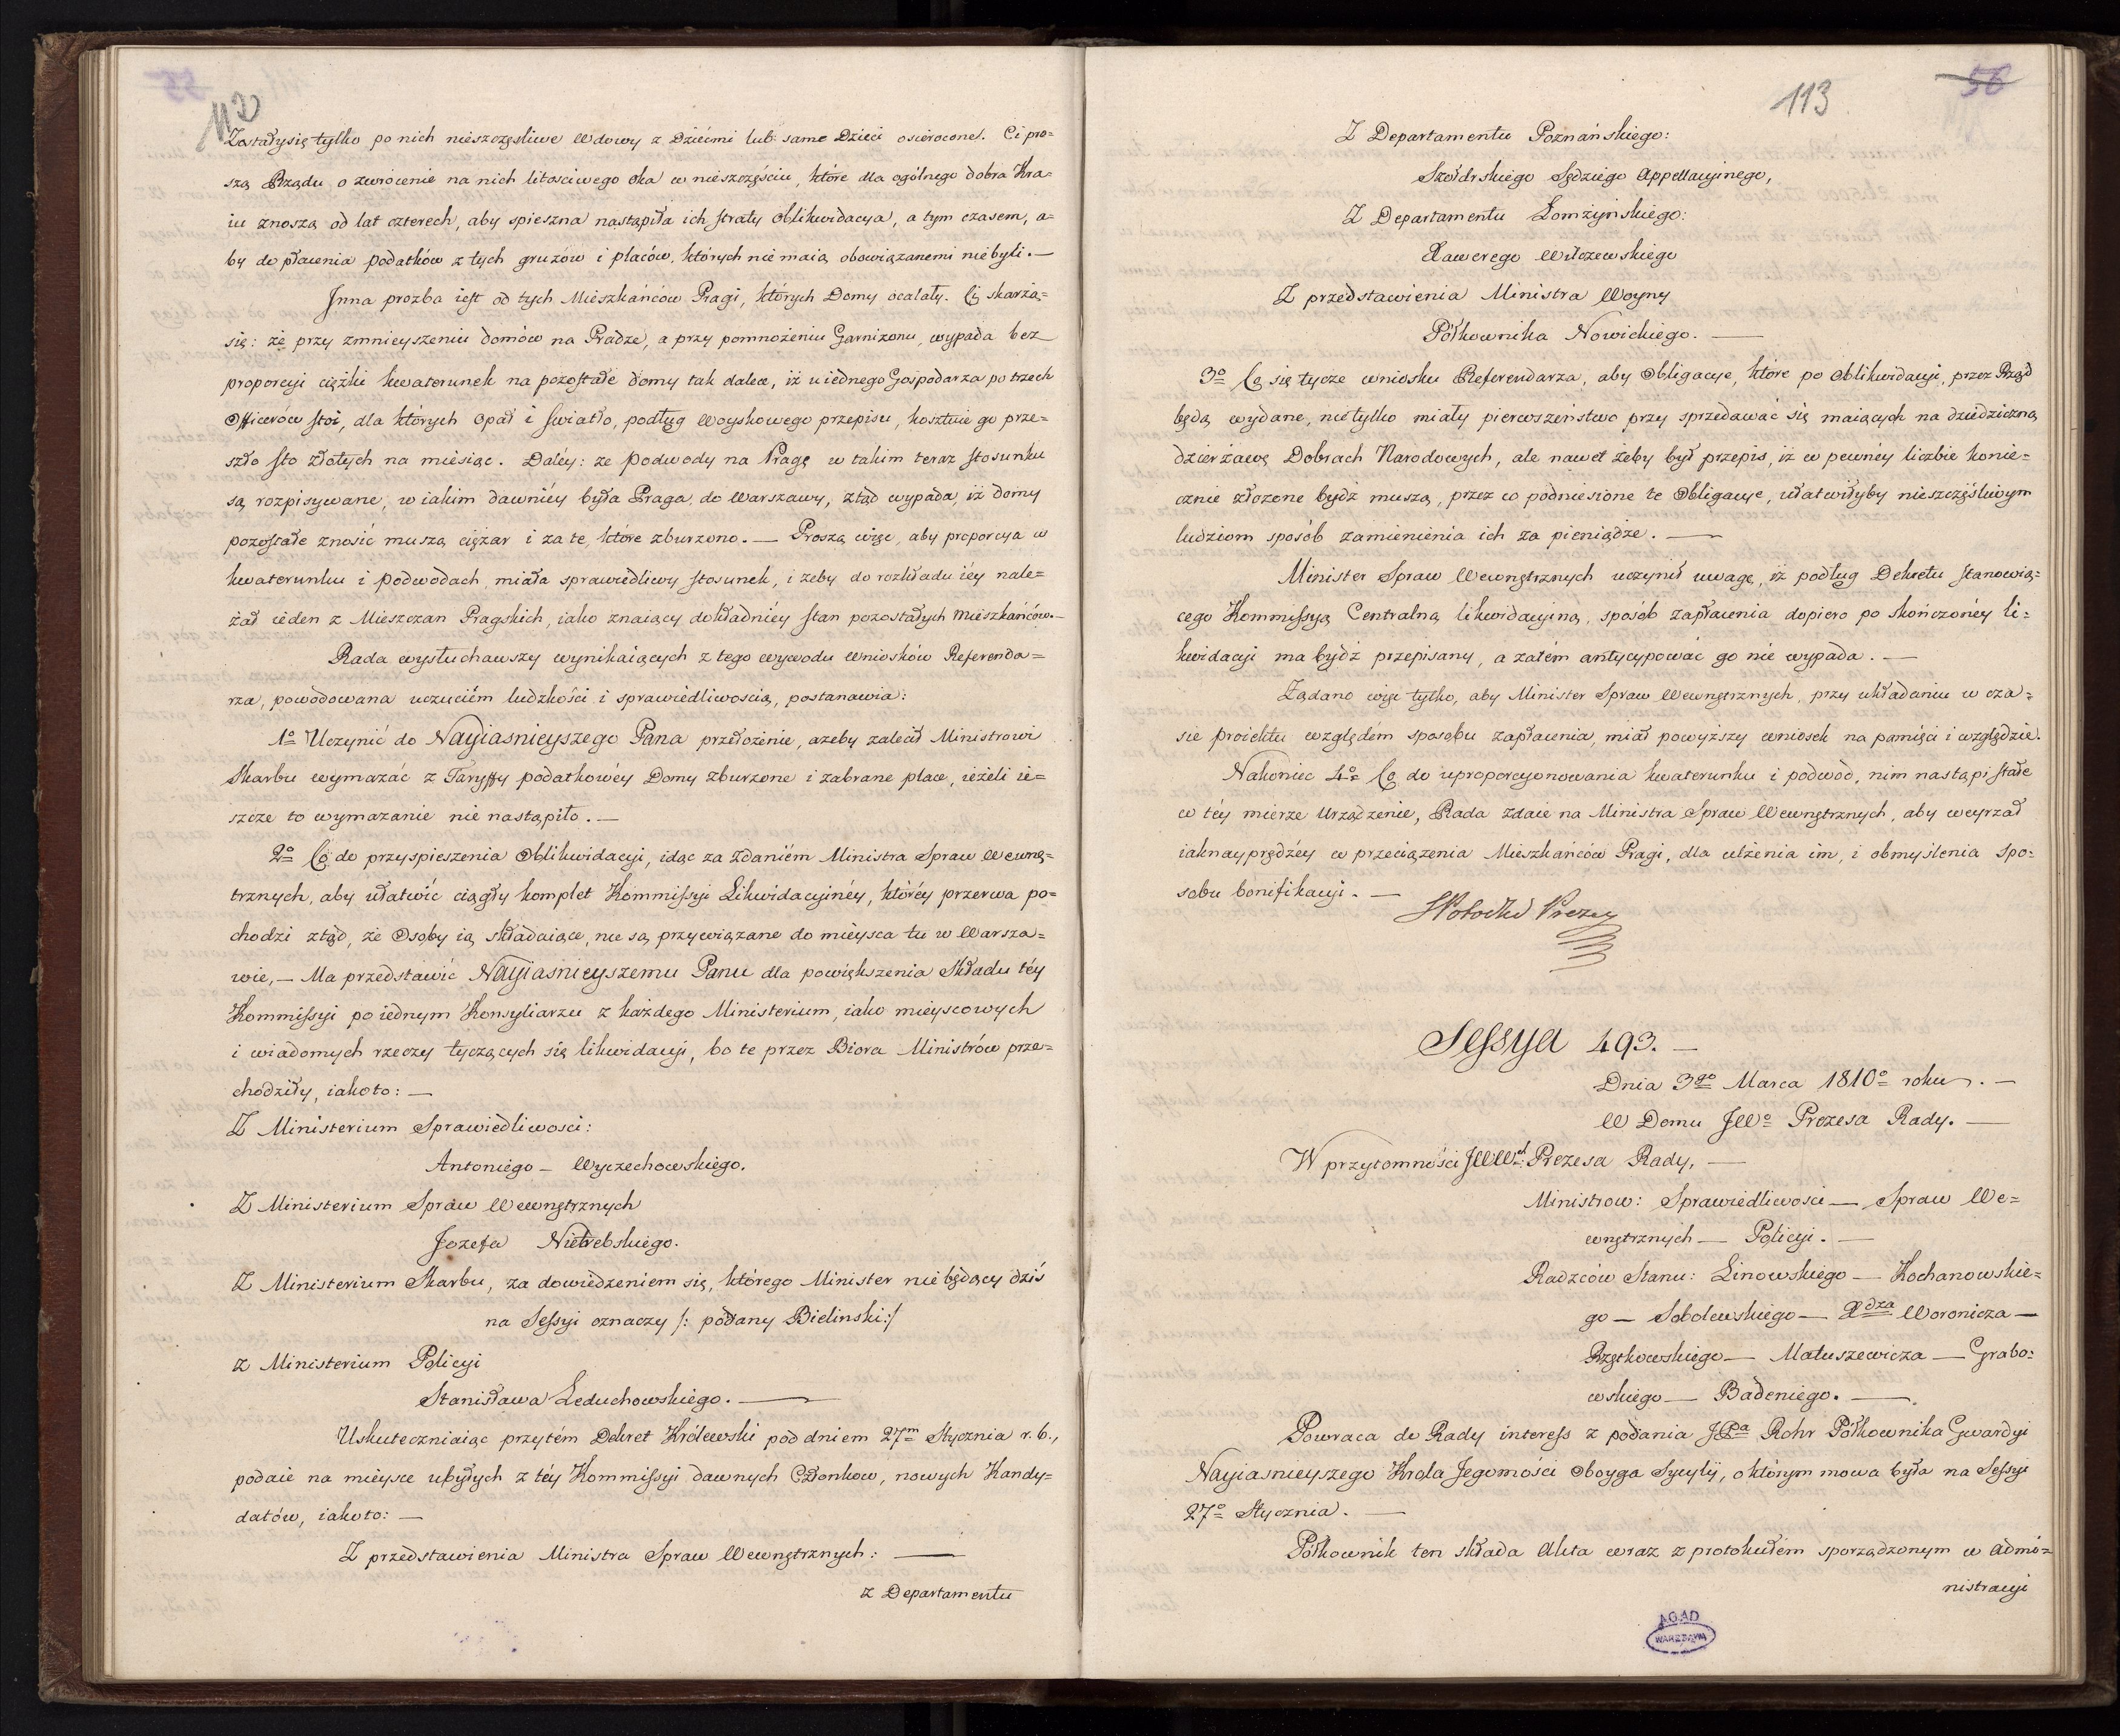 112
Zostały się tylko po nich nieszczęśliwe Wdowy z Dziećmi lub same Dzieci osierocone. Ci pro=
szą Rządu o zwrócenie na nich litościwego oka w nieszczęściu, które dla ogólnego dobra Kra=
iu znoszą od lat czterech, aby spieszna nastąpiła ich straty oblikwidacya, a tym czasem, a=
by do płacenia podatków z tych gruzów i placów, których nie maią, obowiązanemi niebyli. —
Jnna prozba iest od tych Mieszkańców Pragi, których Domy ocalały. Ci skarżą=
się: że przy zmnieyszeniu domów na Pradze, a przy pomnożeniu Garnizonu, wypada bez
proporcyi ciężki kwaterunek na pozostałe domy tak dalece, iż u iednego Gospodarza po trzech
Officerów stoi, dla których opał i swiatło, podług woyskowego przepisu, kosztuie go prze=
szło sto złotych na miesiąc. Daléy: ze podwody na Pragę w takim teraz stosunku
są rozpisywane, w iakim dawniéy była Praga do Warszawy, ztąd wypada, iż domy
pozostałe znosić muszą ciężar i za te, które zburzono. — Proszą więc, aby proporcya w
kwaterunku i podwodach miała sprawiedliwy stosunek, i zeby do rozkładu iéy nale=
żał ieden z Mieszczan Pragskich, iako znaiący dokładniéy stan pozostałych Mieszkańców. —
Rada wysłuchawszy wynikaiących z tego wywodu wniosków Referenda=
rza, powodowana uczuciém ludzkości i sprawiedliwością, postanawia:
1o Uczynić do Nayiasnieyszego Pana przełożenie, azeby zalecił Ministrowi
Skarbu wymazać z Taryffy podatkowéy Domy zburzone i zabrane place, ieżeli ie=
szcze to wymazanie nie nastąpiło. —
2o Co do przyspieszenia Oblikwidacyi, idąc za zdaniém Ministra Spraw Wewnę=
trznych, aby ułatwić ciągły komplet Kommissyi Likwidacyinéy, któréy przerwa po=
chodzi ztąd, że Osoby ią składaiące, nie są przywiązane do mieysca tu w Warsza=
wie, — Ma przedstawić Nayiaśnieyszemu Panu dla powiększenia składu téy
Kommissyi po iednym Konsyliarzu z każdego Ministerium, iako mieyscowych
i wiadomych rzeczy tyczących się likwidacyi, bo te przez Biora Ministrów prze=
chodziły, iakoto: —
Z Ministerium Sprawiedliwości:
Antoniego — Wyczechowskiego.
Z Ministerium Spraw Wewnętrznych
Jozefa Nietrebskiego.
Z Ministerium Skarbu, za dowiedzeniem się, którego Minister nie będący dziś
na Sessyi oznaczy /: podany Bielinski :/
z Ministerium Policyi
Stanisława Leduchowskiego. —
Uskuteczniaiąc przytém Dekret Królewski pod dniem 27m Stycznia r. b.,
podaie na mieysce ubyłych z téy Kommissyi dawnych Członkow, nowych Kandy=
datów, iakoto: —
Z przedstawienia Ministra Spraw Wewnętrznych: —
z Departamentu
113
56
Z Departamentu Poznańskiego:
Szołdrskiego Sędziego Appellacyinego,
Z Departamentu Łomżyńskiego:
Xawerego Wilczewskiego
Z przedstawienia Ministra Woyny
Półkownika Nowickiego. —
3o Co się tycze wniosku Referendarza, aby Obligacye, które po oblikwidacyi, przez Rząd
będą wydane, nietylko miały pierwszeństwo przy sprzedawać się maiących na dziedziczną
dzierżawę Dobrach Narodowych, ale nawet żeby był przepis, iż w pewnéy liczbie konie=
cznie złożone bydź muszą, przez co podniesione te Obligacye, ułatwiłyby nieszczęśliwym
ludziom sposób zamienienia ich za pieniądze. —
Minister Spraw Wewnętrznych uczynił uwagę, iż podług Dekretu stanowią=
cego Kommissyą Centralną likwidacyiną, sposób zapłacenia dopiero po skończonéy li=
kwidacyi ma bydź przepisany, a zatém antycypować go nie wypada. —
Żądano więc tylko, aby Minister Spraw Wewnętrznych, przy układaniu w cza=
sie proiektu względém sposobu zapłacenia, miał powyższy wniosek na pamięci i względzie.
Nakoniec 4o Co do uproporcyonowania kwaterunku i podwod, nim nastąpi stałe
w téy mierze Urządzenie, Rada zdaie na Ministra Spraw Wewnętrznych, aby weyrzał
iaknayprędzéy w przeciążenia Mieszkańców Pragi, dla ulżenia im, i obmyslenia spo=
sobu bonifikacyi. —
SPotocki Prezes
Sessya 493. —
Dnia 3go Marca 1810o roku. —
W Domu JWo Prezesa Rady. —
W przytomności JWWch Prezesa Rady, —
Ministrow: Sprawiedliwości — Spraw We=
wnętrznych — Policyi. —
Radzców Stanu: Linowskiego — Kochanowskie=
go — Sobolewskiego — Xdza Woronicza —
Rzętkowskiego — Matuszewicza — Grabo=
wskiego — Badeniego. —
Powraca do Rady interess z podania JPa Rohr Półkownika Gwardyi
Nayiasnieyszego Krola Jegomości Oboyga Sycylij, o którym mowa była na Sessyi
27o Stycznia. —
Półkownik ten składa Akta wraz z protokułem sporządzonym w Admi=
nistracyi
AGAD
WARSZAWA